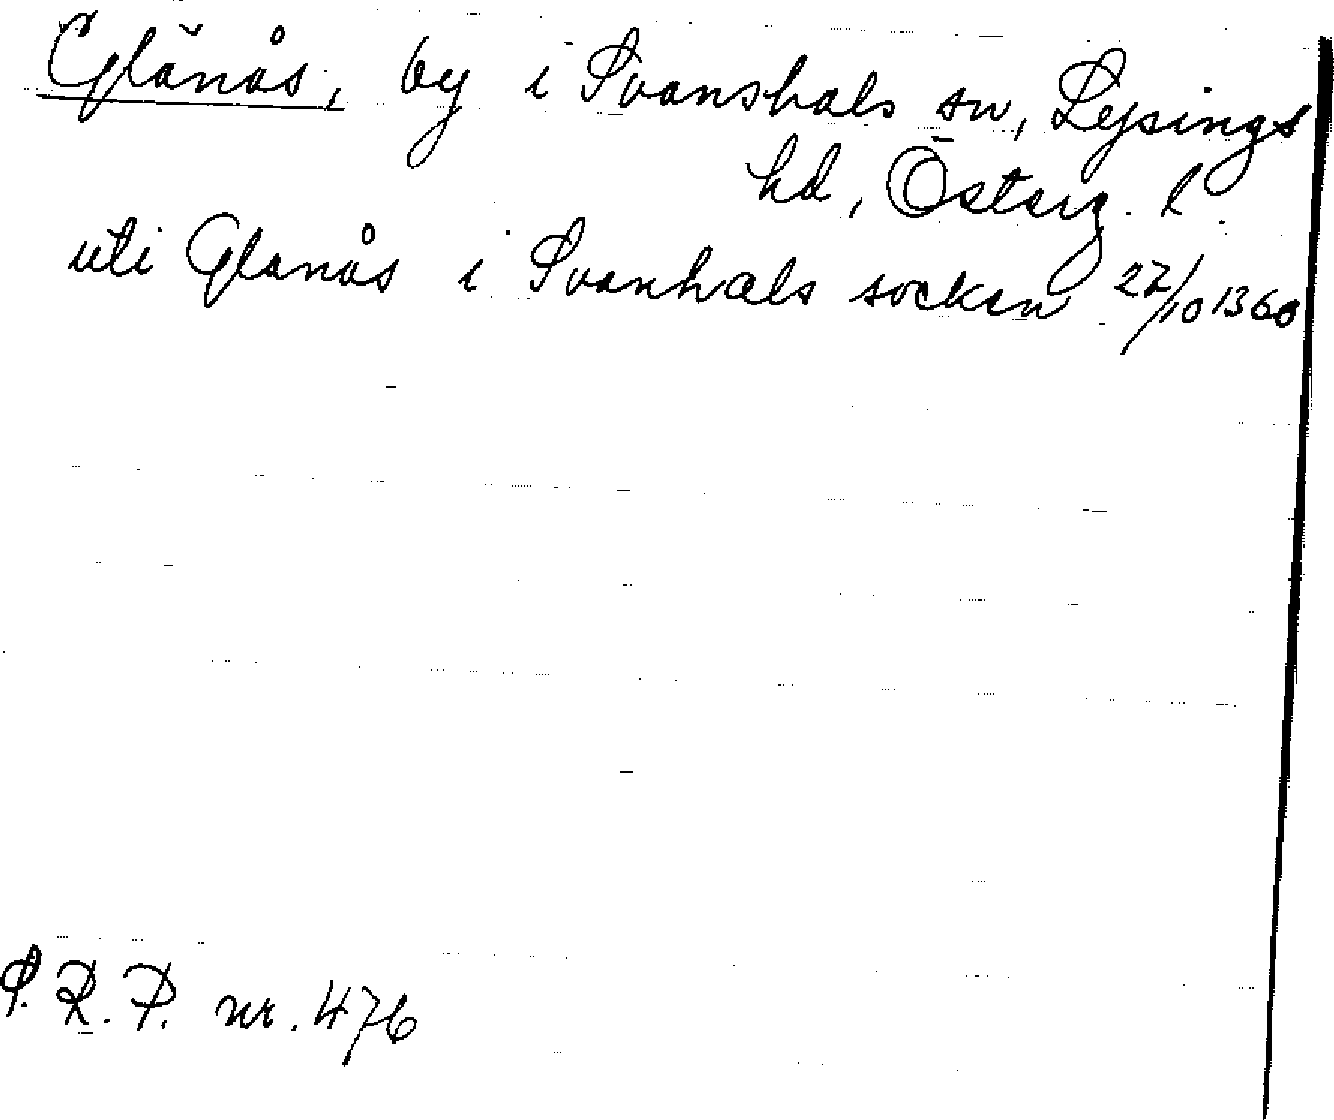 Glänås, by i Svanshals sn, Lysings
hd, Österg. l.
uti Glanås i Svanhals socken 27/10 1360
S.R.P. nr. 476